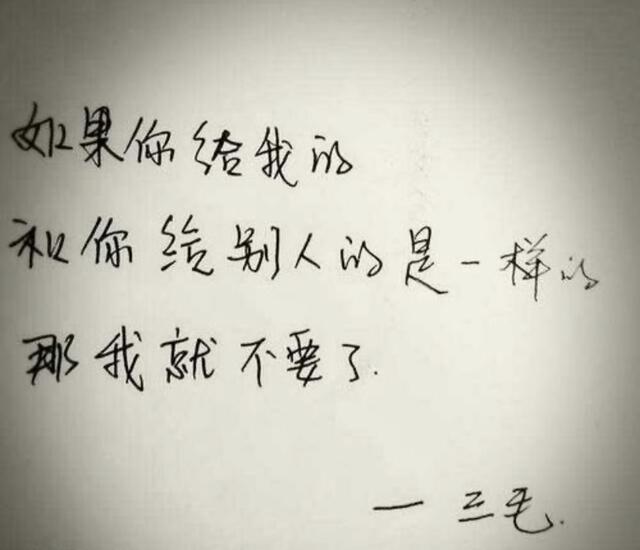 如果你给我的
和你给别人的是一样的
那我就不要了.
—三毛.